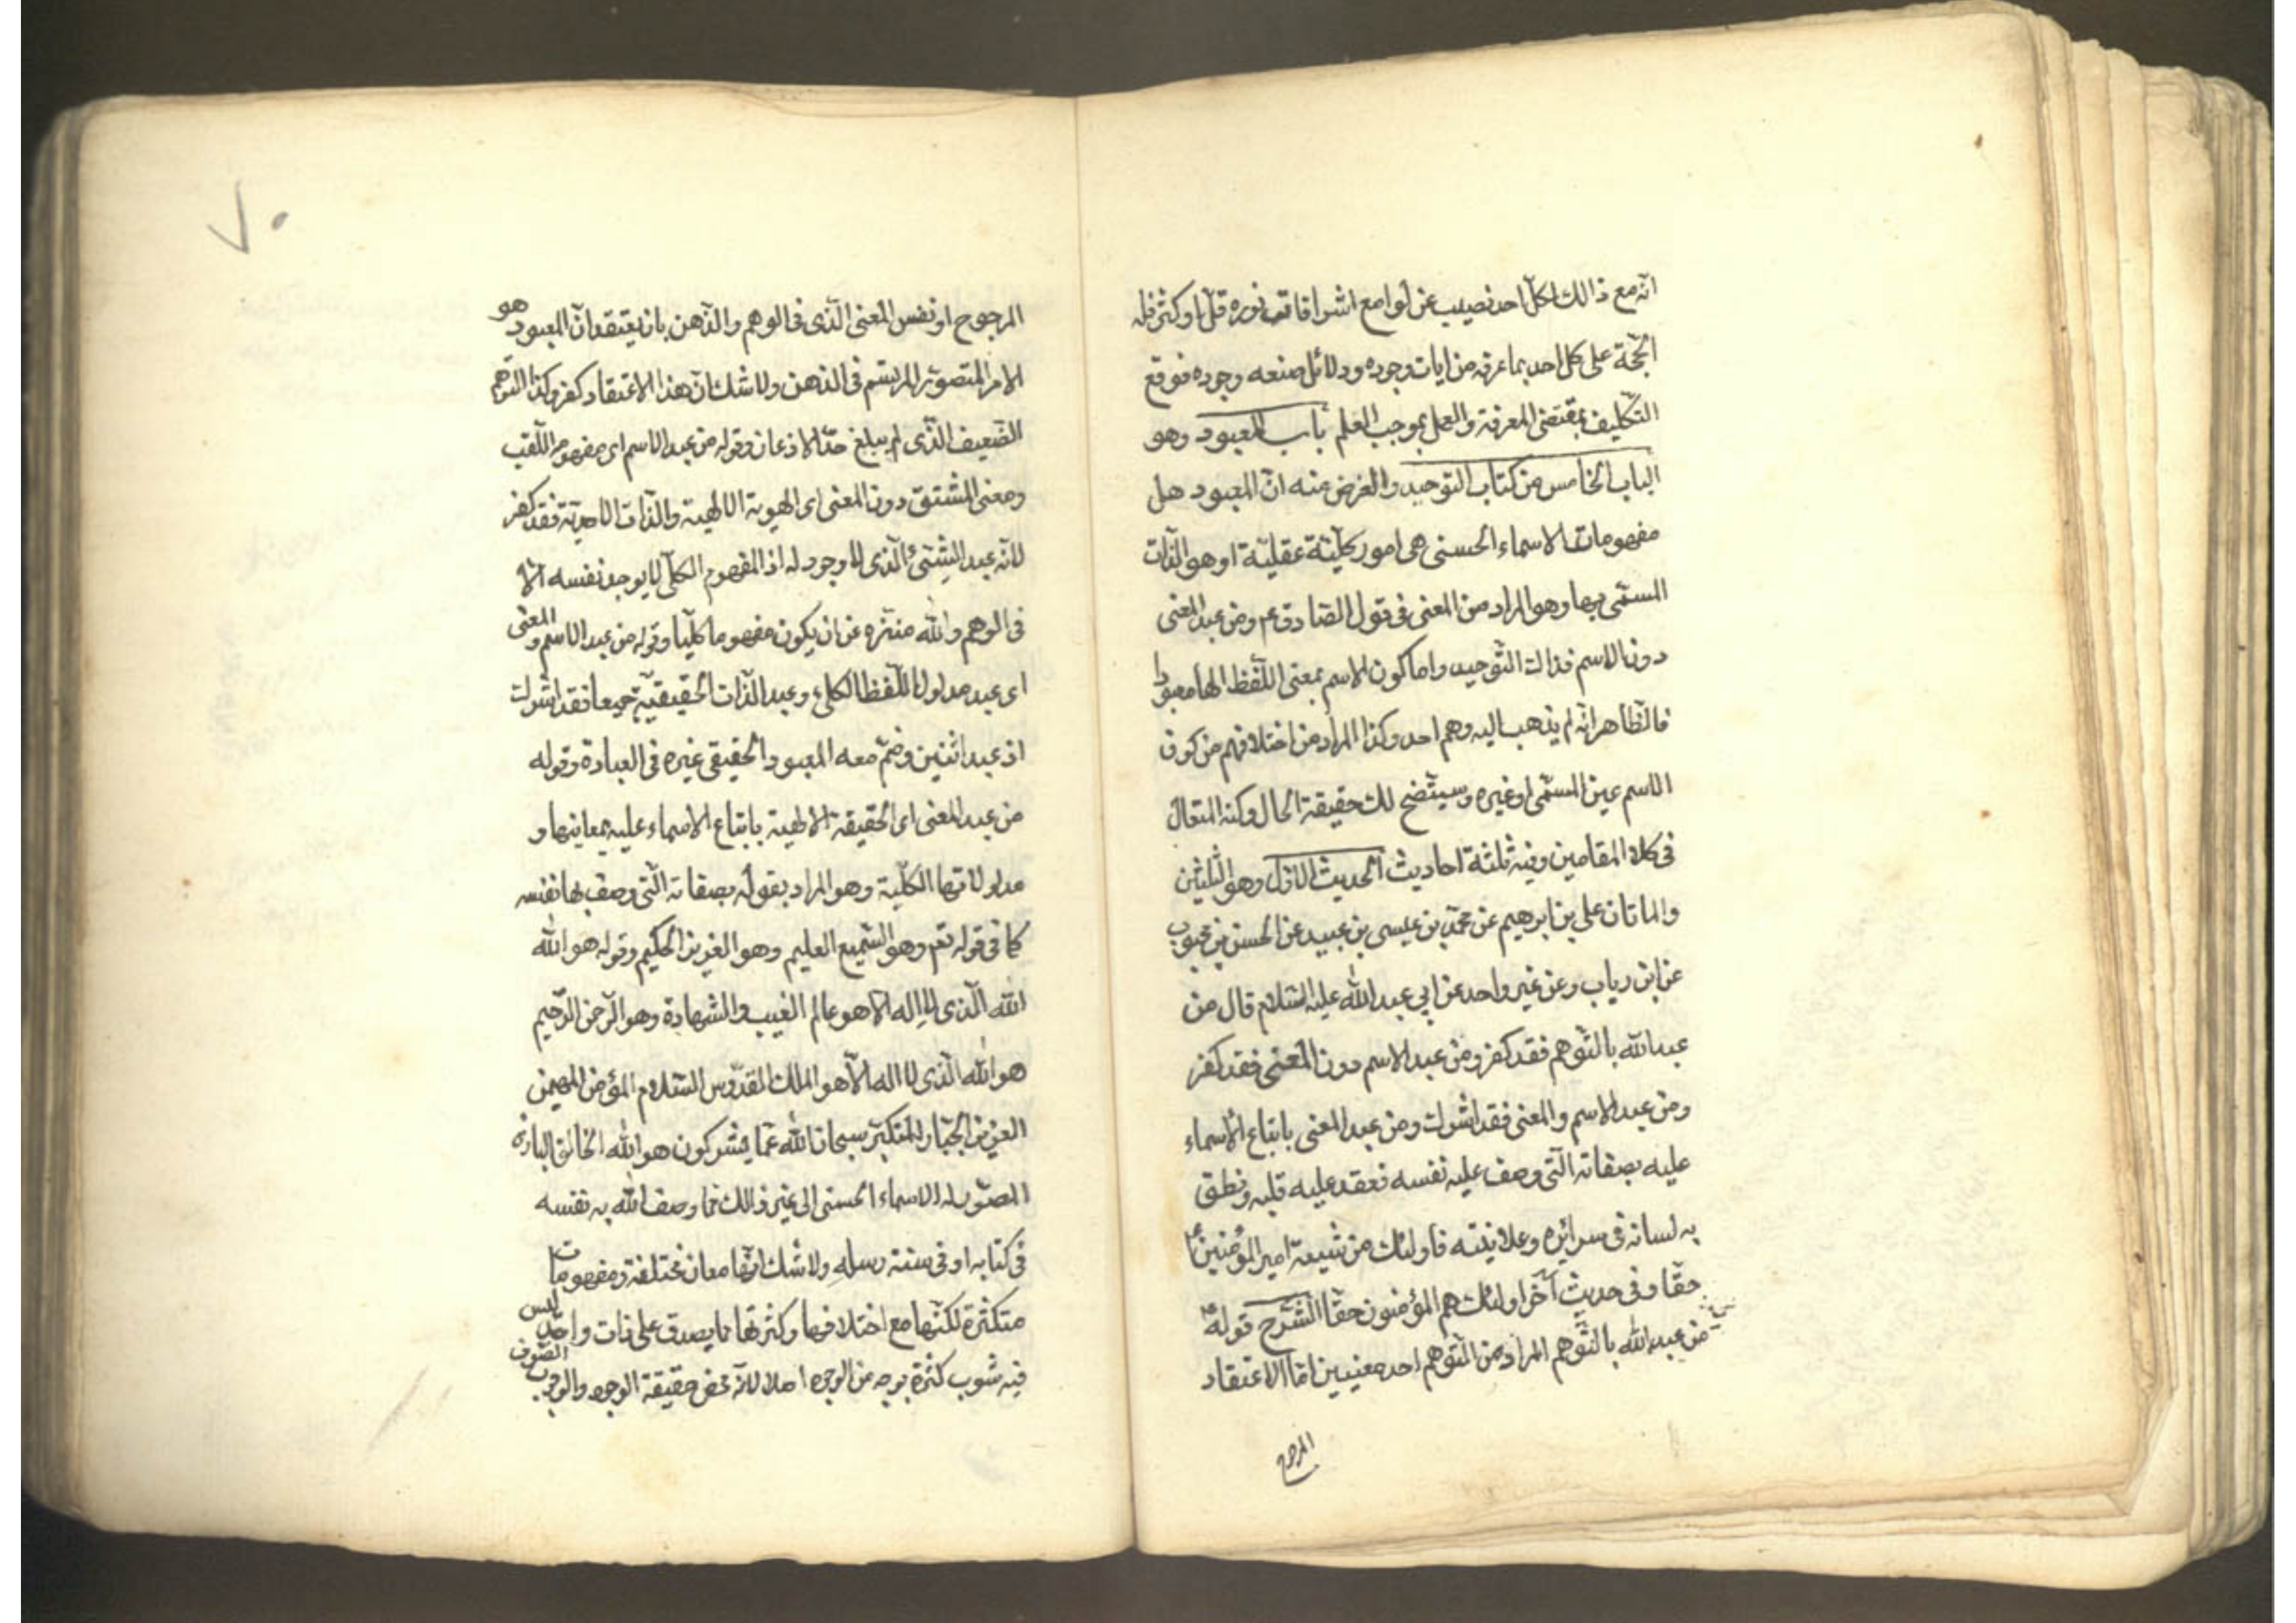 انه مع ذالك لكل احد نصيب عن لوامع اشراقات نوره قل او كثر فله
الحجة على كل احد بما عرفه من ايات وجوده ودلائل صنعه وجوده فوقع
التكليف بمقتضى المعرفة والعمل بموجب العلم باب المعبود وهو
الباب الخامس من كتاب التوحيد والغرض منه ان المعبود هل
مفهومات الاسماء الحسنى هى امور كلية عقلية او هو الذات
المسمى بها وهو المراد من المعنى فى قول الصادق ع ومن عبد المعنى
دون الاسم فذاك التوحيد واما كون الاسم بمعنى اللفظ الها معبودا
فالظاهر انه لم يذهب اليه وهم احد وكذا المراد من اختلافهم من كون
الاسم عين المسمى او غيره وسيتضح لك حقيقة الحال وكنه المقال
فى كلا المقامين وفيه ثلثة احاديث الحديث الاول وهو الثلثين
والماتان على بن ابرهيم عن محمد بن عيسى بن عبيد عن الحسن بن محبوب
عن ابن رياب وعن غير واحد عن ابي عبد الله عليه السلام قال من
عبد الله بالتوهم فقد كفر ومن عبد الاسم دون المعنى فقد كفر
ومن عبد الاسم والمعنى فقد اشرك ومن عبد المعنى بايقاع الاسماء
عليه بصفاته التى وصف عليه نفسه فعقد عليه قلبه ونطق
به لسانه فى سرائره وعلانيته فاولئك من شيعة امير المؤمنين ع
حقا وفى حديث آخر اولئك هم المؤمنون حقا الشرح قوله ع
من عبد الله بالتوهم المراد من التوهم احد معنيين اما الاعتقاد
المرجوح
٧٠
المرجوح او نفس المعنى الذى فى الوهم والذهن بان يعتقد ان المعبود هو
الامر المتصور المرتسم فى الذهن ولا شك ان هذا الاعتقاد كفر وكذا التوهم
الضعيف الذى لم يبلغ حد الاذعان وقوله من عبد الاسم اى مفهوم اللقب
ومعنى المشتق دون المعنى اى الهوية الالهية والذات الاحدية فقد كفر
لانه عبد الشئ الذى لا وجود له اذ المفهوم الكلى لا يوجد نفسه الا
فى الوهم والله منزه عن ان يكون مفهوما كليا وقوله من عبد الاسم والمعنى
اى عبد مدلول اللفظ الكلى وعبد الذات الحقيقية جميعا فقد اشرك
اذ عبد اثنين وضم معه المعبود الحقيقى غيره فى العبادة وقوله
من عبد المعنى اى الحقيقة الالهية بايقاع الاسماء عليه بمعانيها و
مدلولاتها الكلية وهو المراد بقوله بصفاته التى وصف بها نفسه
كما فى قوله تعم وهو السميع العليم وهو العزيز الحكيم وقوله هو الله
الله الذى لا اله الا هو عالم الغيب والشهادة وهو الرحمن الرحيم
هو الله الذى لا اله الا هو الملك القدوس السلام المؤمن المهيمن
العزيز الجبار المتكبر سبحان الله عما يشركون هو الله الخالق البارئ
المصور له الاسماء الحسنى الى غير ذالك مما وصف الله به نفسه
فى كتابه او فى سنة رسله ولا شك انها معان مختلفة ومفهومات
متكثرة لكنها مع اختلافها وكثرتها مما يصدق على ذات واحد ليس
فيه شوب كثرة بوجه من الوجوه اصلا لانه محض حقيقة الوجود والوجوب الصرف